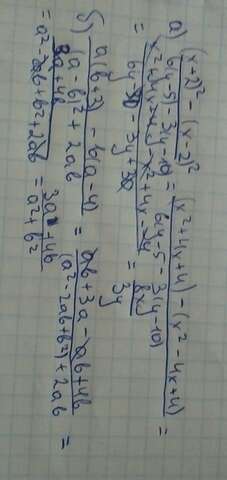 а) (x+2)² - (x-2)² / 6(y-5)-3(y-10) = (x²+4x+4) - (x²-4x+4) / 6y-5-3(y-10) =
= x²+4x+4-x²+4x-4 / 6y-30-3y+30 = 8x / 3y
б) a(b+3) - b(a-4) / (a-b)²+2ab = ab+3a-ab+4b / (a²-2ab+b²)+2ab =
= 3a+4b / a²-2ab+b²+2ab = 3a+4b / a²+b²